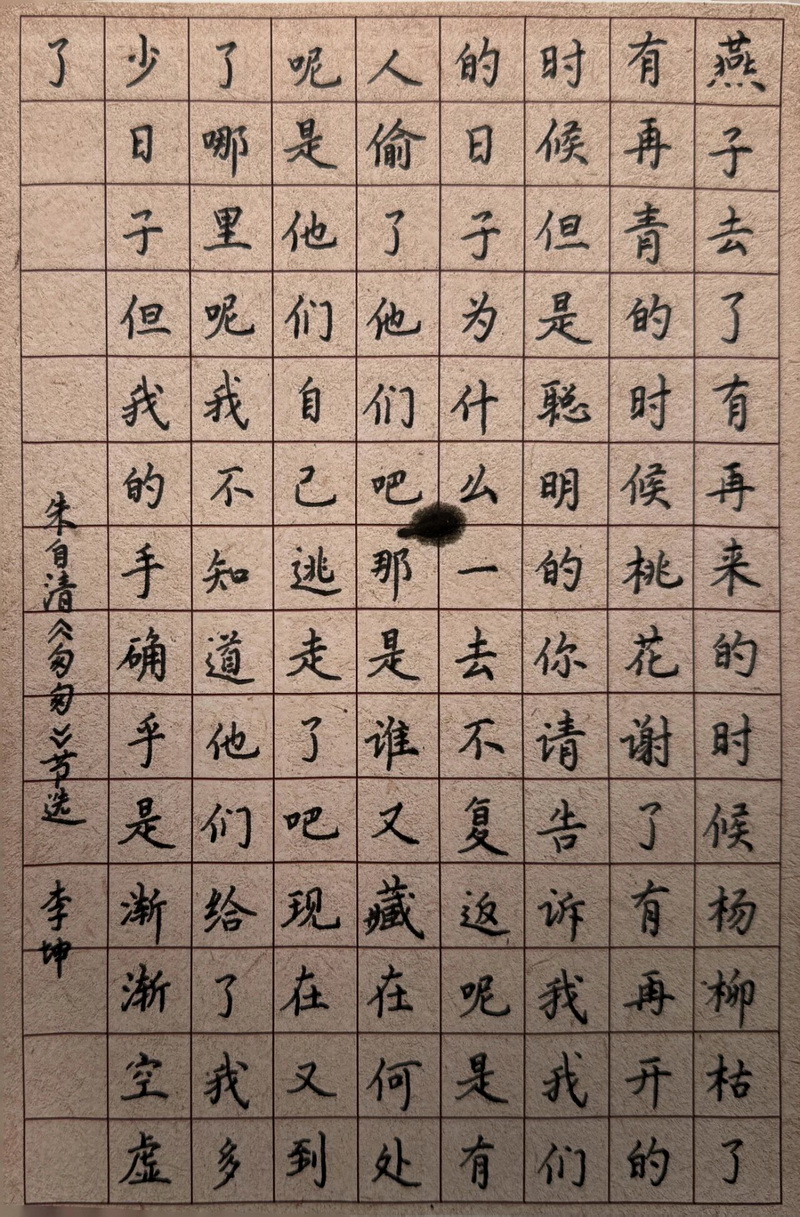 燕子去了有再来的时候杨柳枯了
有再青的时候桃花谢了有再开的
时候但是聪明的你请告诉我我们
的日子为什么一去不复返呢是有
人偷了他们吧那是谁又藏在何处
呢是他们自己逃走了吧现在又到
了哪里呢我不知道他们给了我多
少日子但我的手确乎是渐渐空虚
了
朱自清《匆匆》节选 李坤